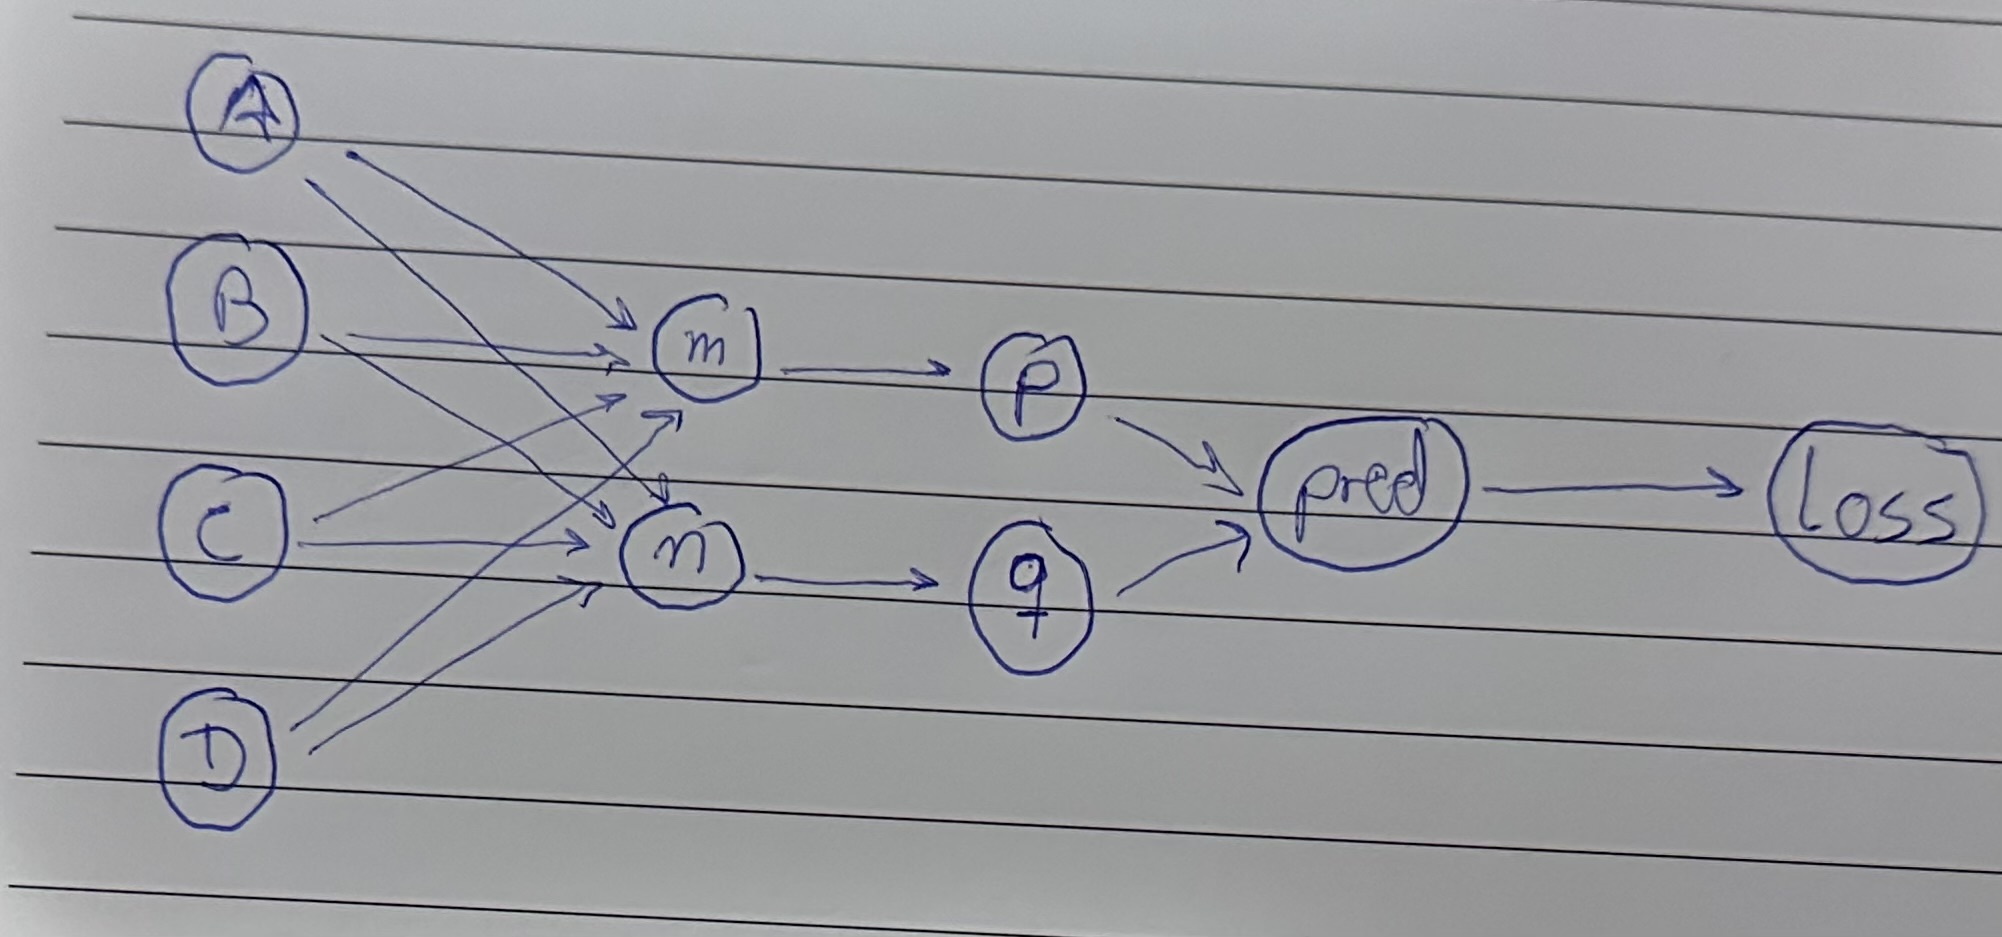 A
B
C
D
m
n
p
q
pred
Loss